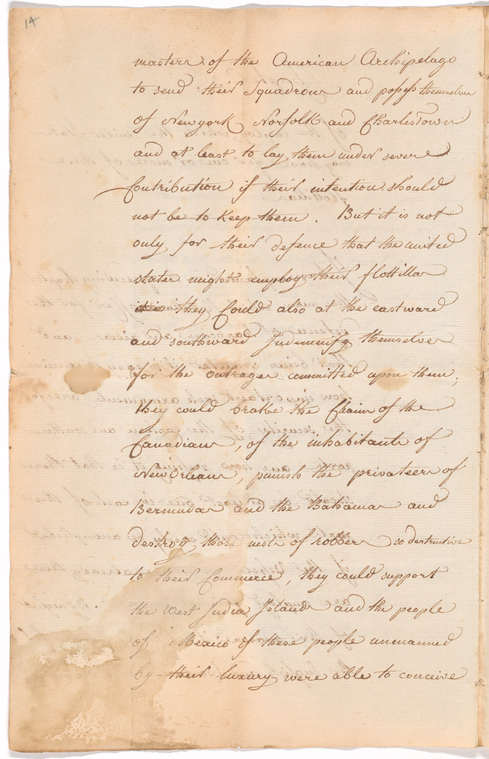 14
masters of the American Archipelago
to send their Squadrons and possess themselves
of Newyork Norfolk and Charlestown
and at least to lay them under severe
Contribution if their intention should
not be to Keep them. But it is not
only for their defence that the united
states might employ their flottilla
they Could also at the eastward
and southward Indemnify themselves
for the outrages committed upon them;
they could brake the Chains of the
Canadians, of the inhabitants of
New Orleans, punish the privateers of
Bermudas and the Bahamas and
destroy those nests of robbers so destructive
to their Commerce, they could support
the West India Islands and the people
of Mexico if these people unmanned
by their luxury were able to conceive